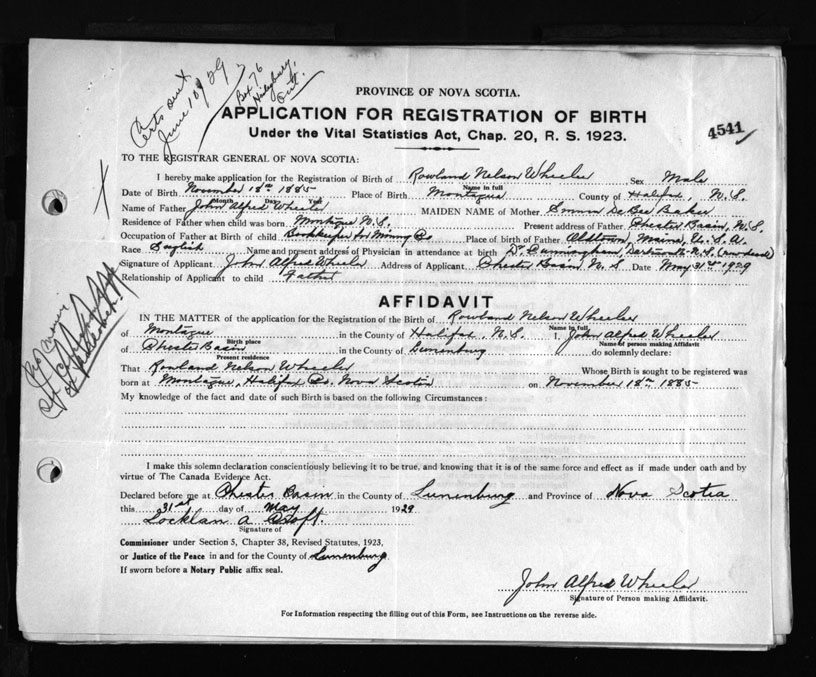 Certs out
June 10/29
Box 76
Haileybury,
Ont.
PROVINCE OF NOVA SCOTIA.
APPLICATION FOR REGISTRATION OF BIRTH
Under the Vital Statistics Act, Chap. 20, R. S. 1923.
4541
TO THE REGISTRAR GENERAL OF NOVA SCOTIA:
I hereby make application for the Registration of Birth of Rowland Nelson Wheeler Sex Male
Name in full
Date of Birth November 18th 1885 Place of Birth Montague County of Halifax, N.S.
Month Day Year
Name of Father John Alfred Wheeler MAIDEN NAME of Mother De Baker
Residence of Father when child was born Montague N.S. Present address of Father Chester Basin, N.S.
Occupation of Father at Birth of child Bookkeeper for Mining Co Place of birth of Father Oldtown, Maine, U.S.A.
Race English Name and present address of Physician in attendance at birth Dr Cunningham, Dartmouth N.S. (now dead)
Signature of Applicant John Alfred Wheeler Address of Applicant Chester Basin N S Date May 31st 1929
Relationship of Applicant to child Father
AFFIDAVIT
IN THE MATTER of the application for the Registration of the Birth of Rowland Nelson Wheeler
Name in full
of Montague in the County of Halifax, N.S. I, John Alfred Wheeler
Birth place Name of person making Affidavit
of Chester Basin in the County of Lunenburg do solemnly declare:
Present residence
That Rowland Nelson Wheeler Whose Birth is sought to be registered was
born at Montague, Halifax Co. Nova Scotia on November 18th 1885
My knowledge of the fact and date of such Birth is based on the following Circumstances:
I make this solemn declaration conscientiously believing it to be true, and knowing that it is of the same force and effect as if made under oath and by
virtue of The Canada Evidence Act.
Declared before me at Chester Basin in the County of Lunenburg and Province of Nova Scotia
this 31st day of May 1929
Locklan A
Signature of
Commissioner under Section 5, Chapter 38, Revised Statutes, 1923,
or Justice of the Peace in and for the County of Lunenburg
If sworn before a Notary Public affix seal.
John Alfred Wheeler
Signature of Person making Affidavit.
For Information respecting the filling out of this Form, see Instructions on the reverse side.